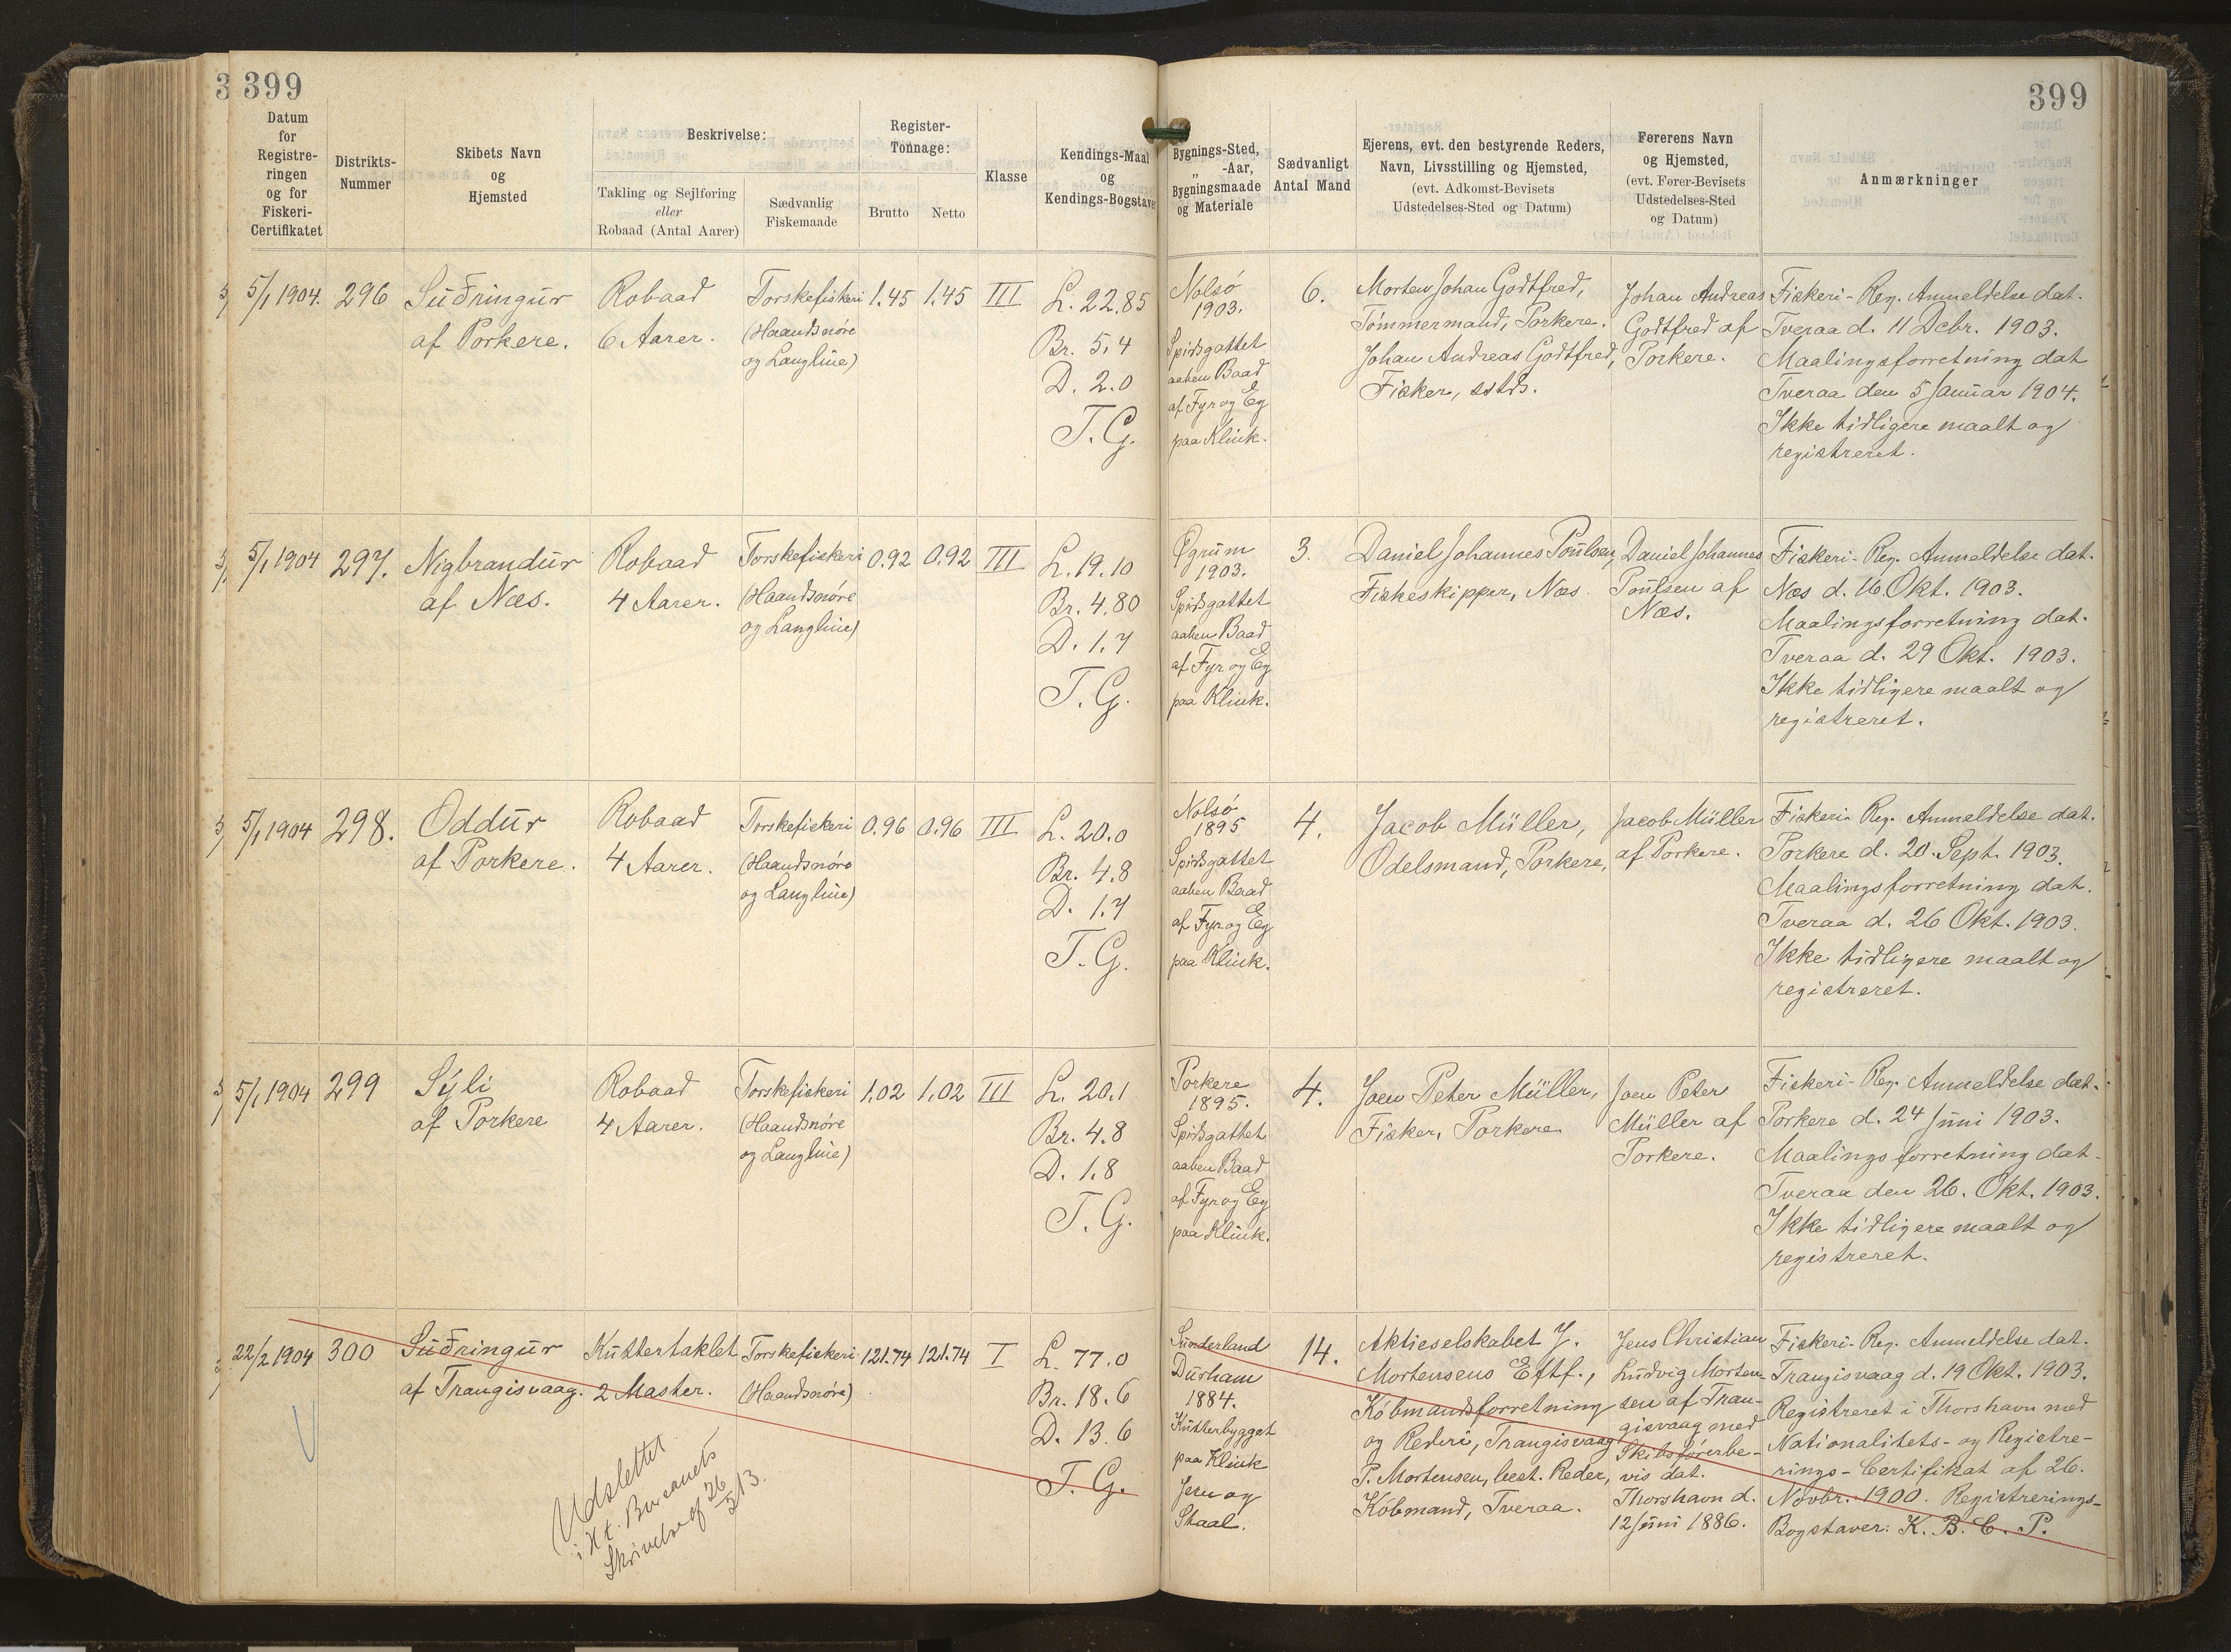 399
399
Datum
for
Registre-
ringen
og for
Fiskeri-
Certifikatet
Distrikts-
Nummer
Skibets Navn
og
Hjemsted
Beskrivelse:
Takling og Sejlføring
eller
Robaad (Antal Aarer)
Sædvanlig
Fiskemaade
Register-
Tonnage:
Brutto
Netto
Klasse
Kendings-Maal
og
Kendings-Bogstaver
Bygnings-Sted,
„ -Aar,
Bygningsmaade
og Materiale
Sædvanligt
Antal Mand
Ejerens, evt. den bestyrende Reders,
Navn, Livsstilling og Hjemsted,
(evt. Adkomst-Bevisets
Udstedelses-Sted og Datum)
Førerens Navn
og Hjemsted,
(evt. Fører-Bevisets
Udstedelses-Sted
og Datum)
Anmærkninger
5/1 1904.
296
Suðringur
af Porkere.
Robaad
6 Aarer.
Torskefiskeri
(Haandsnøre
og Langline)
1.45
1.45
III
L. 22.85
Br. 5.4
D. 2.0
T.G.
Nolsö
1903.
Spidsgattet
aaben Baad
af Fyr og Eg
paa Klink.
6.
Morten Johan Godtfred,
Tømmermand, Porkere.
Johan Andreas Godtfred,
Fisker, sstds.
Johan Andreas
Godtfred af
Porkere.
Fiskeri-Reg. Anmeldelse dat.
Tveraa d. 11 Debr. 1903.
Maalingsforretning dat
Tveraa den 5 Januar 1904.
Ikke tidligere maalt og
registreret.
5/1 1904
297.
Nigbrandur
af Næs.
Robaad
4 Aarer.
Torskefiskeri
(Haandsnøre
og Langline)
0.92
0.92
III
L. 19.10
Br. 4.80
D. 1.7
T.G.
Øgrum
1903.
Spidsgattet
aaben Baad
af Fyr og Eg
paa Klink.
3.
Daniel Johannes Poulsen,
Fiskeskipper, Næs.
Daniel Johannes
Poulsen af
Næs.
Fiskeri-Reg. Anmeldelse dat.
Næs d. 16 Okt. 1903.
Maalingsforretning dat.
Tveraa d. 29 Okt. 1903.
Ikke tidligere maalt og
registreret.
5/1 1904
298.
Oddur
af Porkere.
Robaad
4 Aarer.
Torskefiskeri
(Haandsnøre
og Langline)
0.96
0.96
III
L. 20.0
Br. 4.8
D. 1.7
T.G.
Nolsö
1895
Spidsgattet
aaben Baad
af Fyr og Eg
paa Klink.
4.
Jacob Müller,
Odelsmand, Porkere,
Jacob Müller
af Porkere.
Fiskeri-Reg. Anmeldelse dat.
Porkere d. 20. Sept. 1903.
Maalingsforretning dat.
Tveraa d. 26 Okt. 1903.
Ikke tidligere maalt og
registreret.
5/1 1904
299
Sýli
af Porkere
Robaad
4 Aarer.
Torskefiskeri
(Haandsnøre
og Langline)
1.02
1.02
III
L. 20.1
Br. 4.8
D. 1.8
T.G.
Porkere
1895.
Spidsgattet
aaben Baad
af Fyr og Eg
paa Klink.
4.
Joen Peter Müller,
Fisker, Porkere.
Joen Peter
Müller af
Porkere.
Fiskeri-Reg. Anmeldelse dat.
Porkere d. 24 Juni 1903.
Maalingsforretning dat.
Tveraa den 26. Okt. 1903.
Ikke tidligere maalt og
registreret.
22/2 1904
300
Suðringur
af Trangisvaag.
Kuttertaklet
2 Master.
Torskefiskeri
(Haandsnøre)
121.74
121.74
I
L. 77.0
Br. 18.6
D. 13.6
T.G.
Udslettet
i H.t. Bureauets
Skrivelse af 26
5/13.
Sunderland
Durham
1884.
Kutterbygget
paa Klink
Jern og
Staal.
14.
Aktieselskabet J.
Mortensens Eftf.,
Købmandsforretning
og Rederi, Trangisvaag
P. Mortensen, best. Reder,
Købmand, Tveraa.
Jens Christian
Ludvig Morten-
sen af Tran-
gisvaag med
Skibsførerbe-
vis dat.
Thorshavn d.
12 Juni 1886.
Fiskeri-Reg. Anmeldelse dat.
Trangisvaag d. 19 Okt. 1903.
Registreret i Thorshavn med
Nationalitets- og Registre-
rings-Certifikat af 26.
Novbr. 1900. Registrerings-
Bogstaver: K. B. C. P.